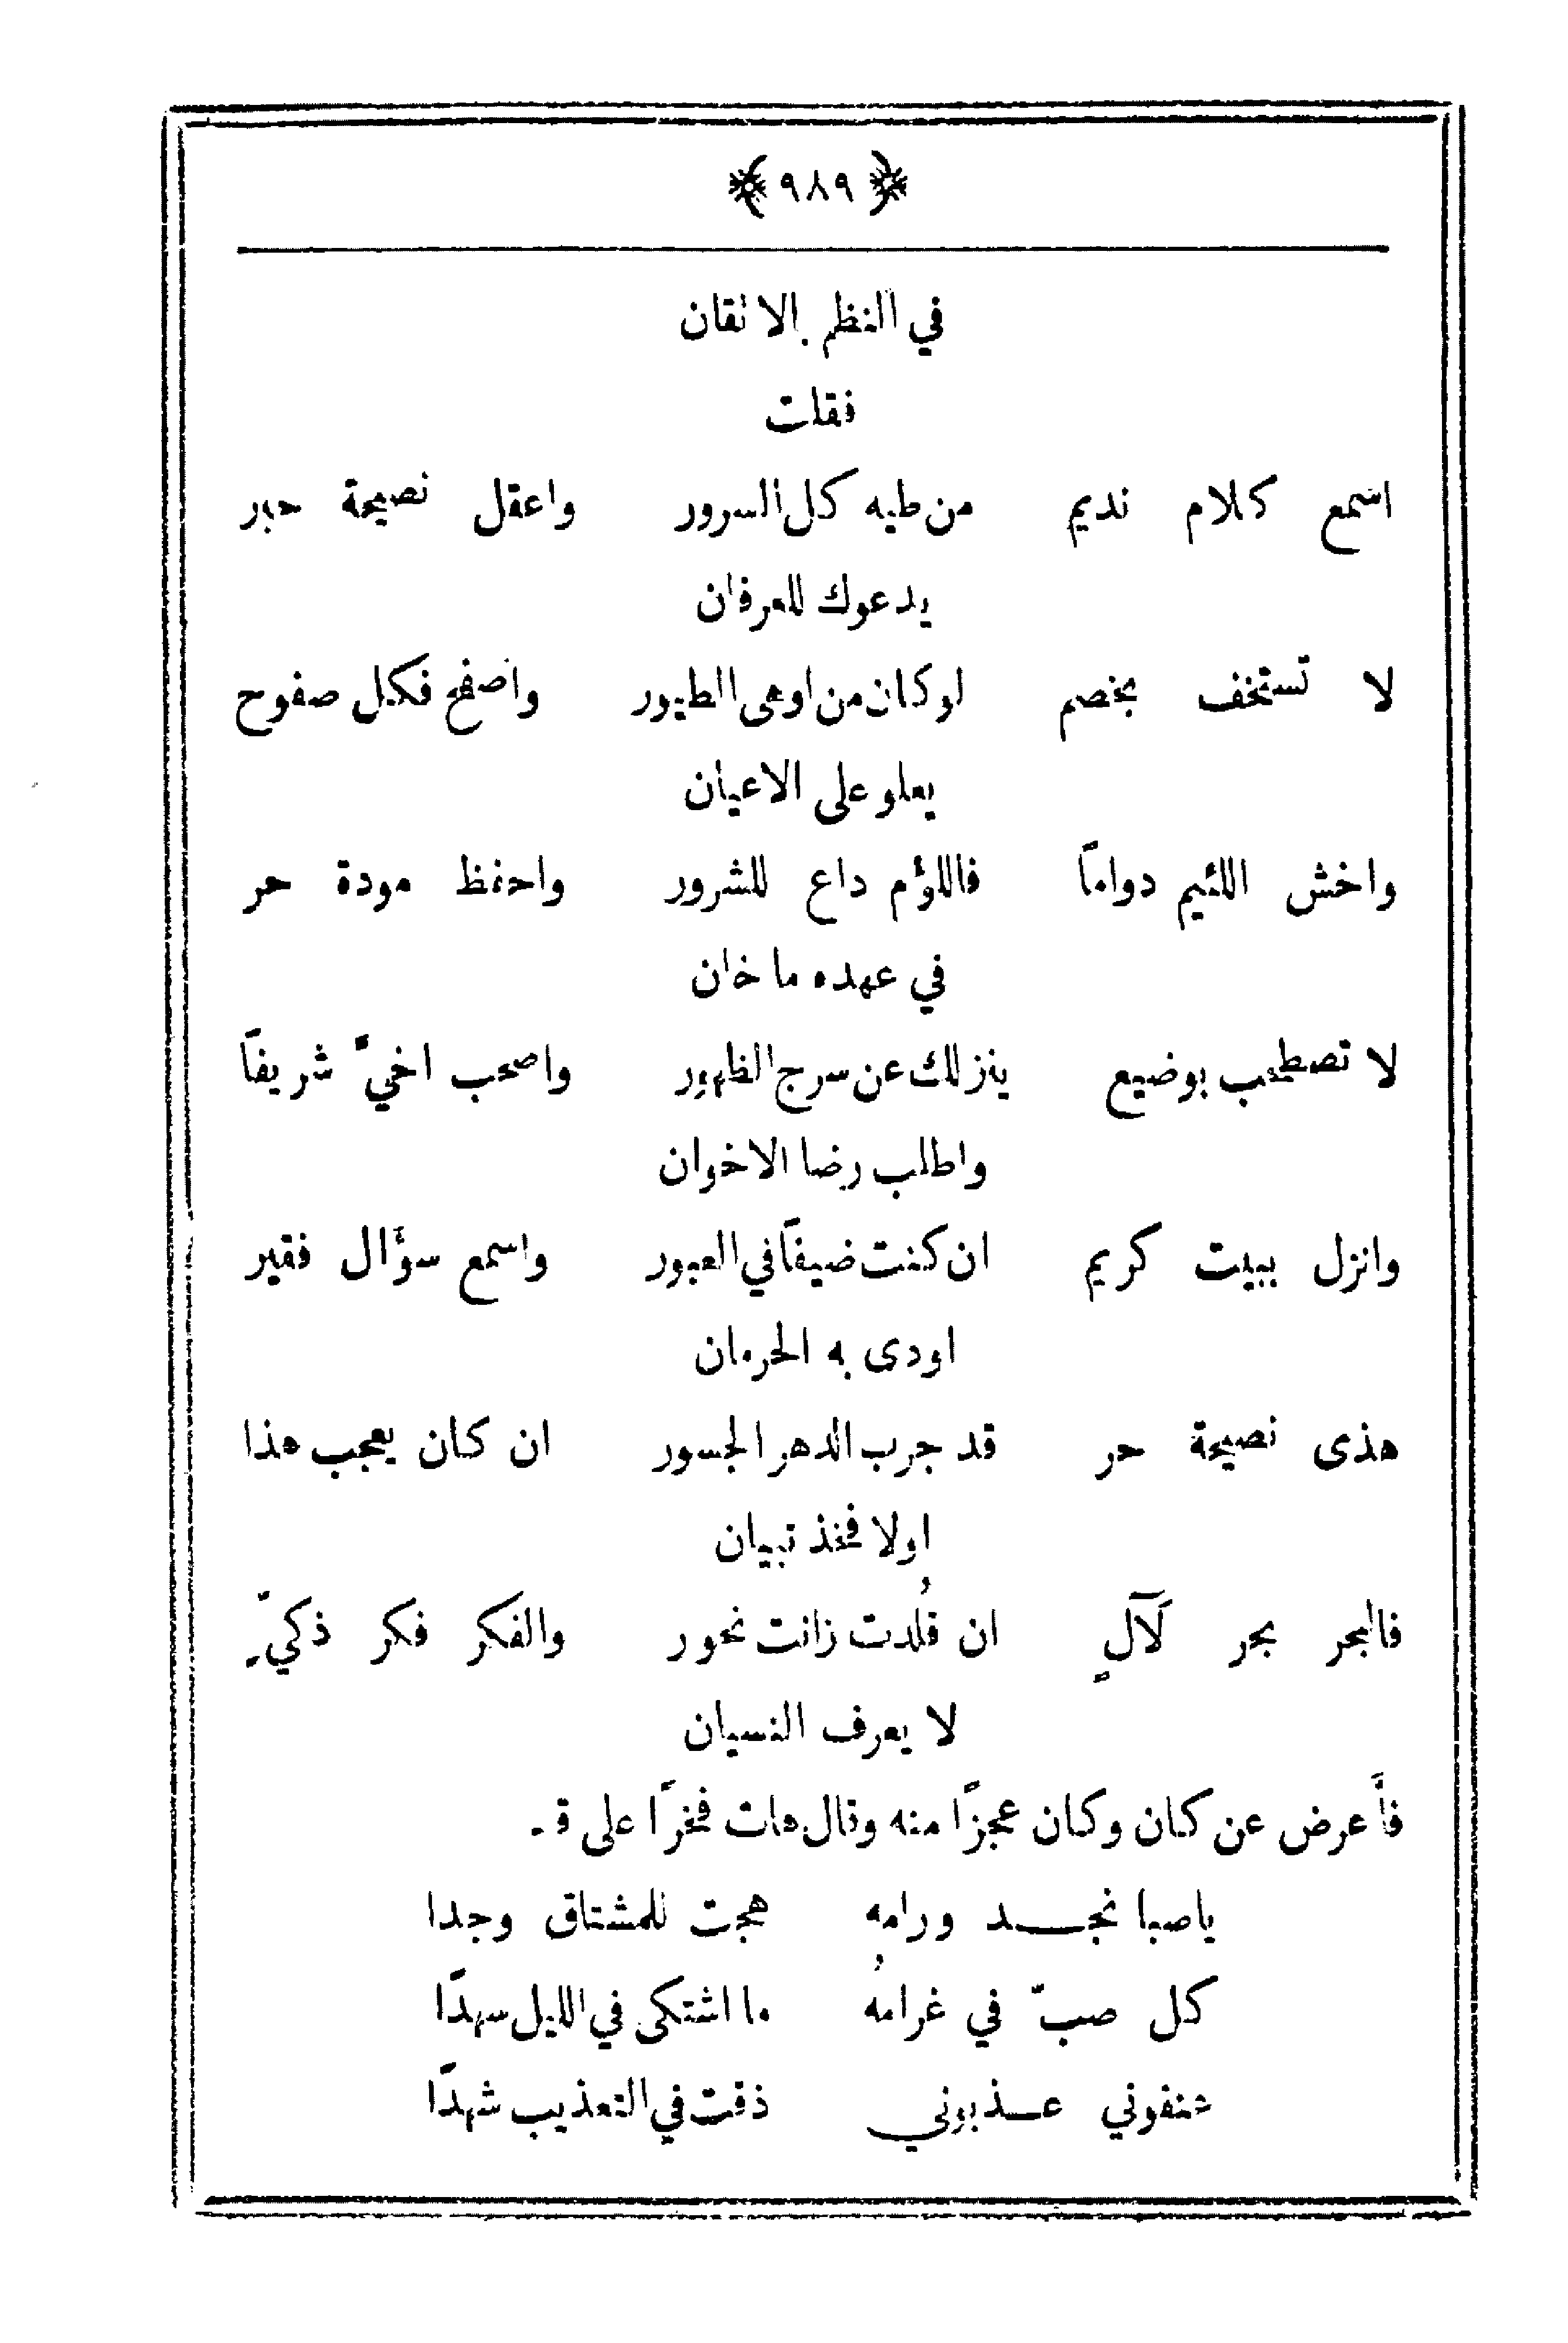 ﴿ ٩٨٩ ﴾
في النظم الاتقان
فقلت
اسمع كلام نديم من طيه كل السرور واعقل نصيحة حبر
يدعوك للعرفان
لا تستخف بخصم لو كان من اوهى الطيور واصفح فكل صفوح
يعلو على الاعيان
واخش اللئيم دوامًا فاللؤم داع للشرور واحفظ مودة حر
في عهده ما خان
لا تصطحب بوضيع ينزلك عن سرج الظهور واصحب اخيّ شريفًا
واطلب رضا الاخوان
وانزل ببيت كريم ان كنت ضيفًا في العبور واسمع سؤال فقير
اودى به الحرمان
هذى نصيحة حر قد جرب الدهر الجسور ان كان يعجب هذا
اولا فخذ تبيان
فالبحر بحر لآلٍ ان قُلدت زانت نحور والفكر فكر ذكيّ
لا يعرف النسيان
فأَعرض عن كان وكان عجزًا منه وقال هات فخرًا على
ياصبا نجـــد ورامه هجت للمشتاق وجدا
كل صبّ في غرامهُ ما اشتكى في الليل سهدًا
شنفوني عـــذبوني ذقت في التعذيب شهدًا